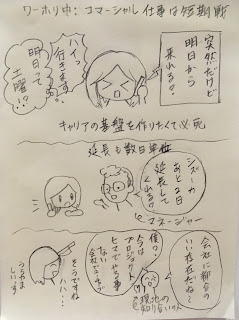 ワーホリ中：コマーシャル仕事は短期戦
突然だけど
明日から
来れる?
ハイッ
行きます!
明日って
土曜!?
キャリアの基盤を作りたくて必死
延長も数日単位
シズーカ
あと2日
延長して
くれる?
マネージャー
会社に都合の
いい存在だね〜
僕?
今は
プロジェクト
ヒマでやる事
ない
現地の
知り合いの人
そうですね
ハハ…
うらやま
しいっす